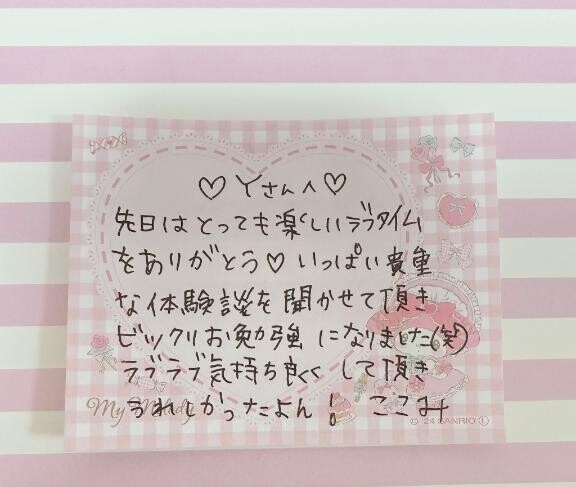 ♡Yさんへ♡
先日はとっても楽しいラブタイム
をありがとう♡いっぱい貴重
な体験談を聞かせて頂き
ビックリお勉強になりました(笑)
ラブラブ気持ち良くして頂き
うれしかったよん! ここみ
My Melody
© '24 SANRIO Ⓛ